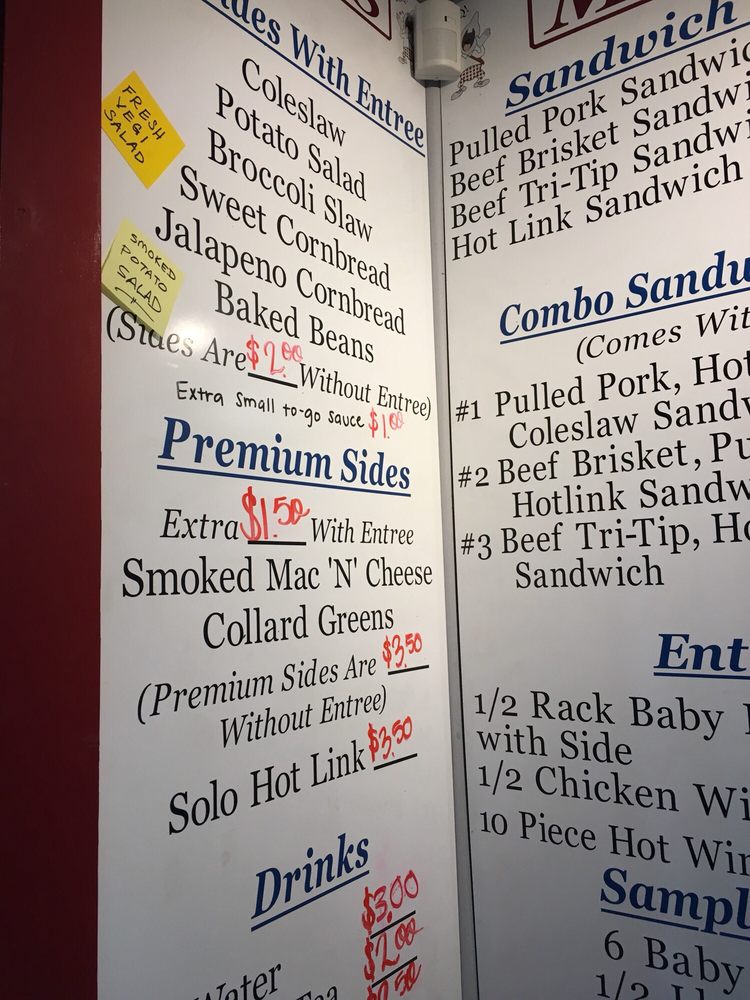 Sides With Entree
Coleslaw
Potato Salad
Broccoli Slaw
Sweet Cornbread
Jalapeno Cornbread
Baked Beans
FRESH
VEGI
SALAD
SMOKED
POTATO
SALAD
(Sides Are $2.00 Without Entree)
Extra small to-go sauce $1.00
Premium Sides
Extra $1.50 With Entree
Smoked Mac 'N' Cheese
Collard Greens
(Premium Sides Are $3.50
Without Entree)
Solo Hot Link $3.50
Drinks
$3.00
Water $2.00
Tea
Sandwich
Pulled Pork Sandwic
Beef Brisket Sandwi
Beef Tri-Tip Sandwi
Hot Link Sandwich
Combo Sandw
(Comes Wit
#1 Pulled Pork, Hot
Coleslaw Sandw
#2 Beef Brisket, Pu
Hotlink Sandw
#3 Beef Tri-Tip, Ho
Sandwich
Ent
1/2 Rack Baby
with Side
1/2 Chicken Wi
10 Piece Hot Win
Sampl
6 Baby
1/2